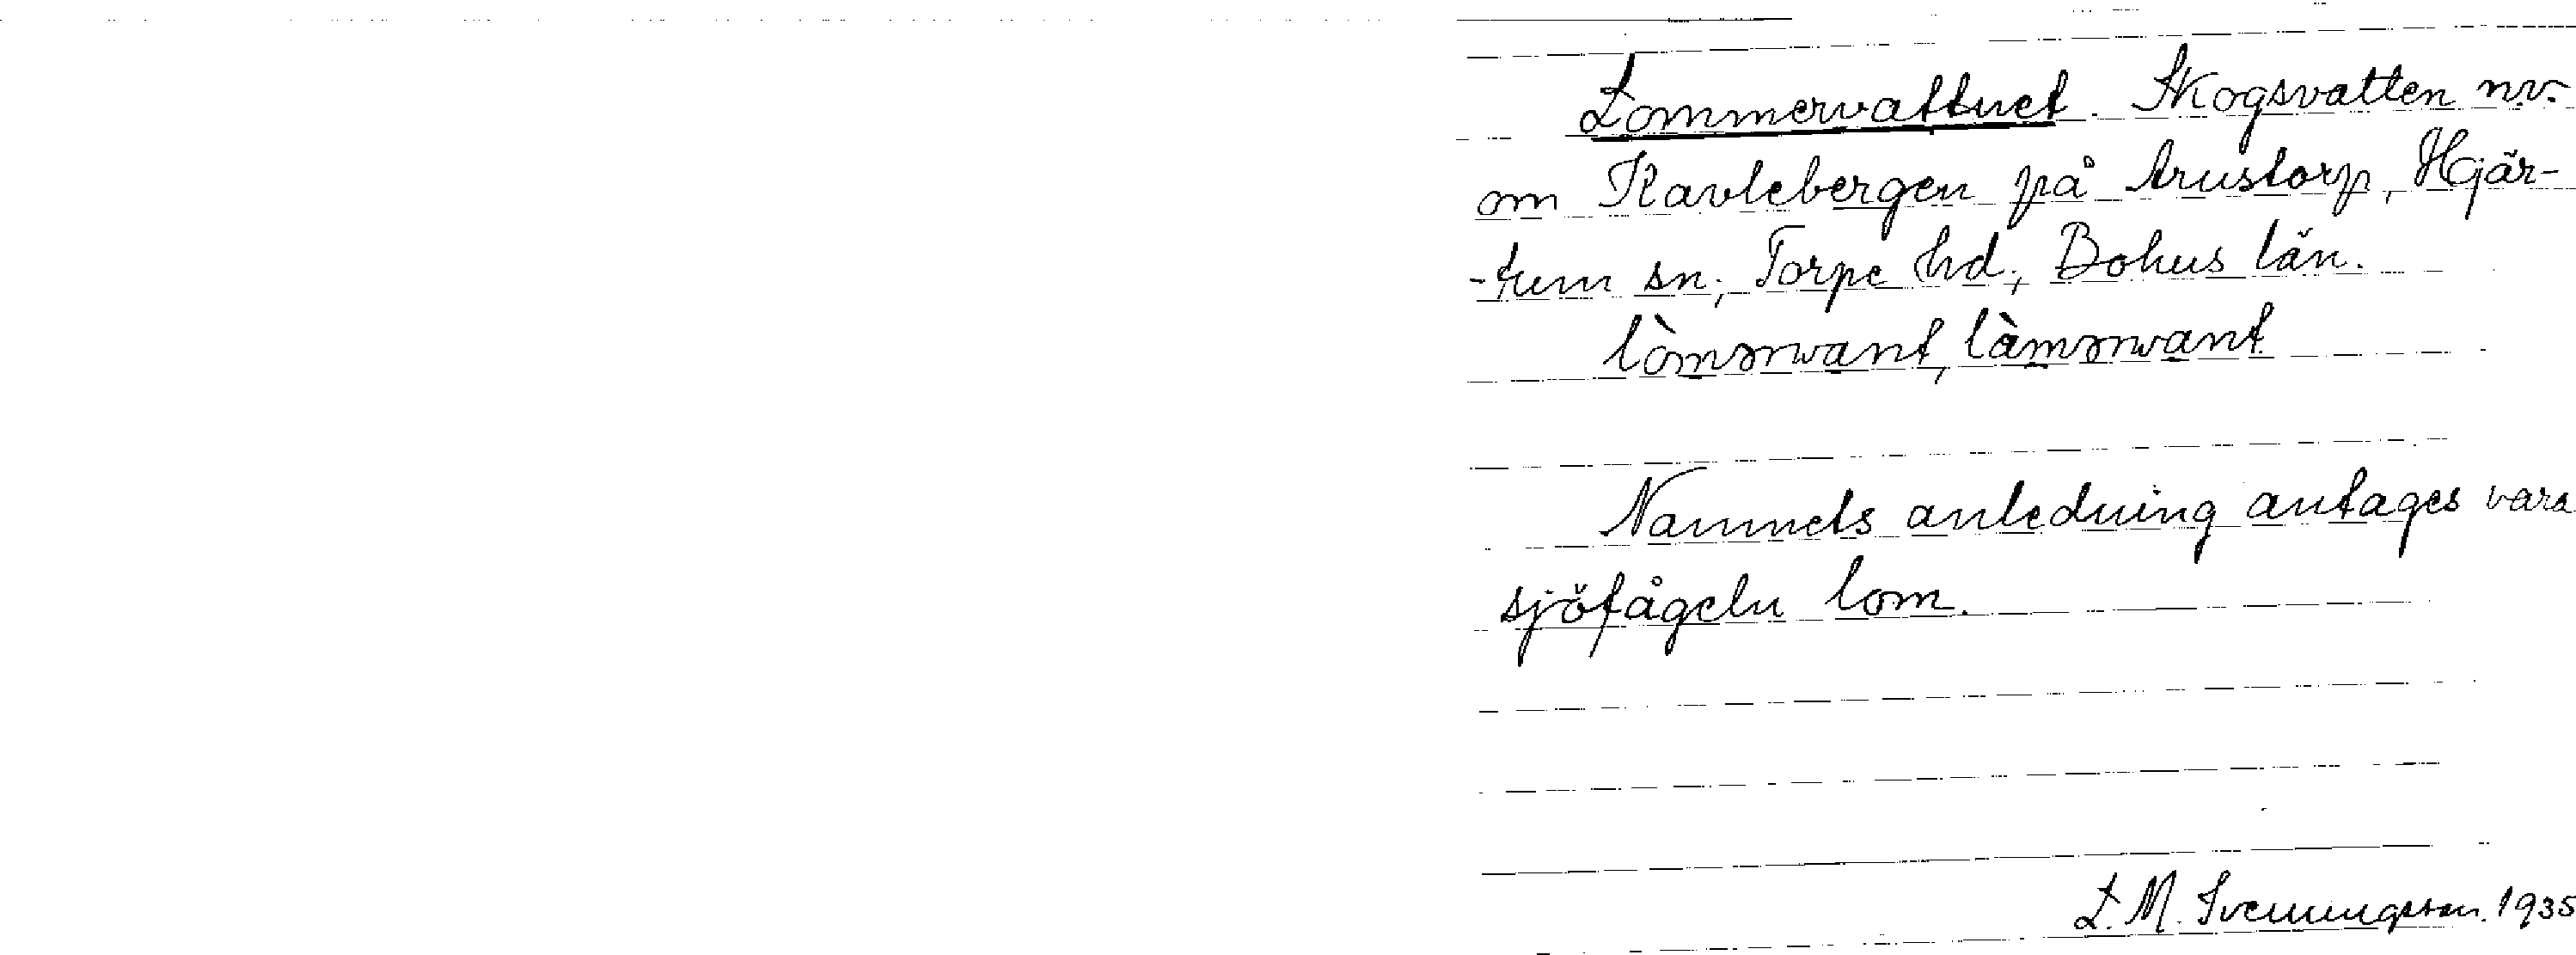 Lommervattnet. Skogsvatten n.v.
om Kavlebergen på Arustorp, Hjär-
-tum sn; Torpe hd; Bohus län.
lòmərvant, làmərvant.
Namnets anledning antages vara
sjöfågeln lom.
L. M. Svenungsson. 1935